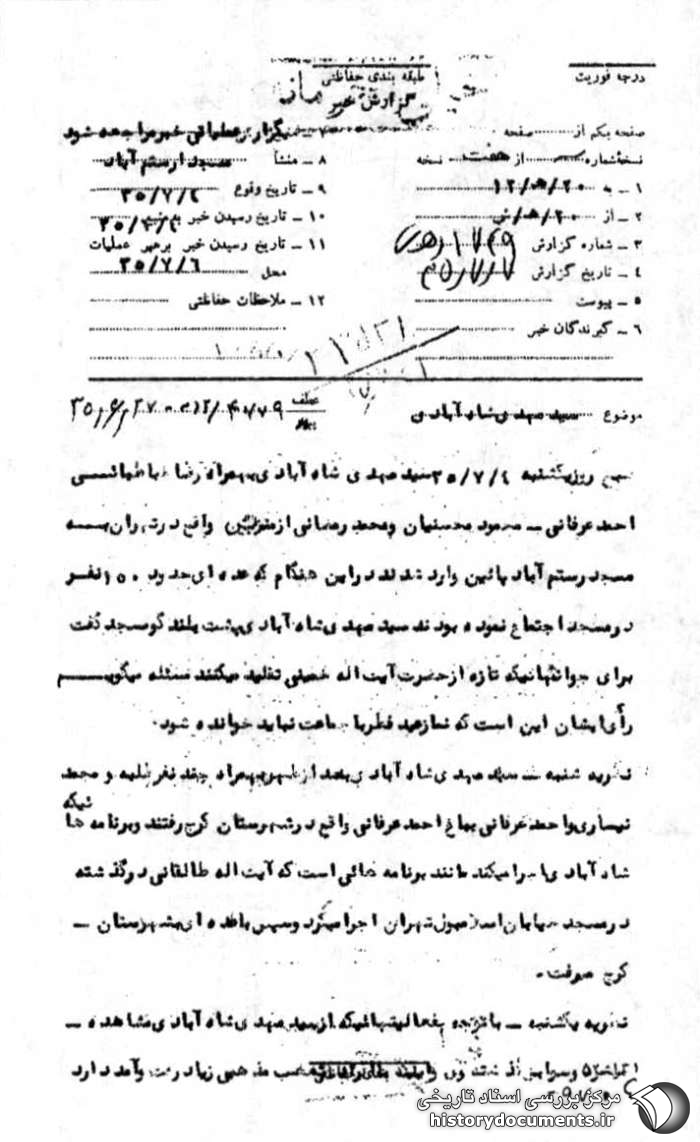 درجه فوریت
طبقه بندی حفاظتی
گزارش خبر
صفحه یکم از صفحه
نسخهٔ شماره از هفت نسخه
۱ – به ۲۰/ه/۱۲
۲ – از ۲۰/ه/ش
۳ – شماره گزارش
۴ – تاریخ گزارش ۳۵/۷/۷
۵ – پیوست
۶ – گیرندگان خبر
بگزارز عملیاتی خبر مراجعه شود
۸ – منشأ مسجد رستم آباد
۹ – تاریخ وقوع ۳۵/۷/۴
۱۰ – تاریخ رسیدن خبر
۱۱ – تاریخ رسیدن خبر برهبر عملیات
محل ۳۵/۷/۶
۱۲ – ملاحظات حفاظتی
موضوع سید مهدی شاه آبادی
عطف
صبح روز یکشنبه ۳۵/۷/۴ سید مهدی شاه آبادی بهمراه رضا طباطبائی
احمد عرفانی – محمود محسنیان و محمد رمضانی از واقع در تهران به
مسجد رستم آباد پائین وارد شدند در این هنگام که عده ای حدود ۱۵۰ نفر
در مسجد اجتماع نموده بودند سید مهدی شاه آبادی پشت بلندگو مسجد گفت
برای جوانهائیکه تازه از حضرت آیت اله خمینی تقلید میکنند مسئله میگویم
رأی ایشان این است که نماز عید فطر با جماعت نباید خوانده شود.
نظریه شنبه – سید مهدی شاه آبادی بعد از ظهر بهمراه چند نفر طلبه و محمد
نیساری و احمد عرفانی بباغ احمد عرفانی واقع در شهرستان کرج رفتند و برنامه ها
ئیکه
شاه آبادی اجرا میکند مانند برنامه هائی است که آیت اله طالقانی در گذشته
در مسجد خیابان اسلامبول تهران اجرا میکرد و سپس با عده ای بشهرستان –
کرج میرفت.
نظریه یکشنبه – با توجه بفعالیتهائیکه از سید مهدی شاه آبادی مشاهده –
مذهبی زیاد رفت و آمد دارد
مرکز بررسی اسناد تاریخی
historydocuments.ir